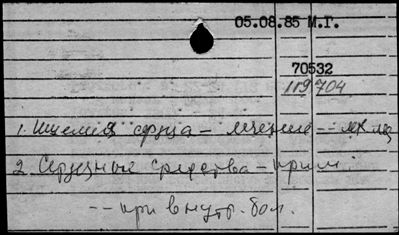 05.08.85 М.Г.
70532
119704
1. Ишемия сердца – лечение --
2. Сердечные средства – прим.
-- при внутр. бол.